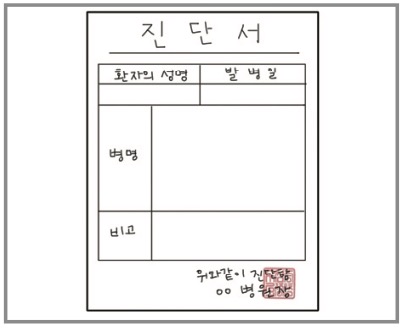 진 단 서
환자의 성명 발 병 일
병명
비고
위와같이 진단함
00 병원장